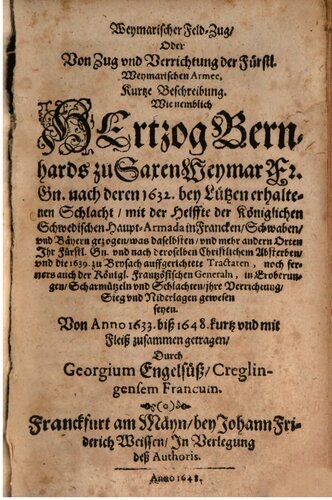 Weymarischer Feld-Zug/
Oder
Von Zug vnd Verrichtung der Fürstl.
Weymarischen Armee,
Kurtze Beschreibung.
Wie nemblich
HErtzog Bern-
hards zu Saxen Weymar Fr.
Gn. nach deren 1632. bey Lützen erhalte-
nen Schlacht / mit der Helffte der Königlichen
Schwedischen Haupt-Armada in Francken/Schwaben/
vnd Bäyern gezogen/was daselbsten/vnd mehr andern Orten
Ihr Fürstl. Gn. vnd nach deroselben Christlichem Absterben/
vnd die 1639. zu Brysach auffgerichtete Tractaten, noch fer-
ners auch der Königl. Frantzösischen Generaln, in Eroberun-
gen/Scharmützeln vnd Schlachten/ihre Verrichtung/
Sieg vnd Niderlagen gewesen
seyen.
Von Anno 1633. biß 1648. kurtz vnd mit
Fleiß zusammen getragen/
Durch
Georgium Engelsüß/Creglin-
gensem Francum.
Franckfurt am Mäyn/bey Johann Fri-
derich Weissen/In Verlegung
deß Authoris.
Anno 1648.